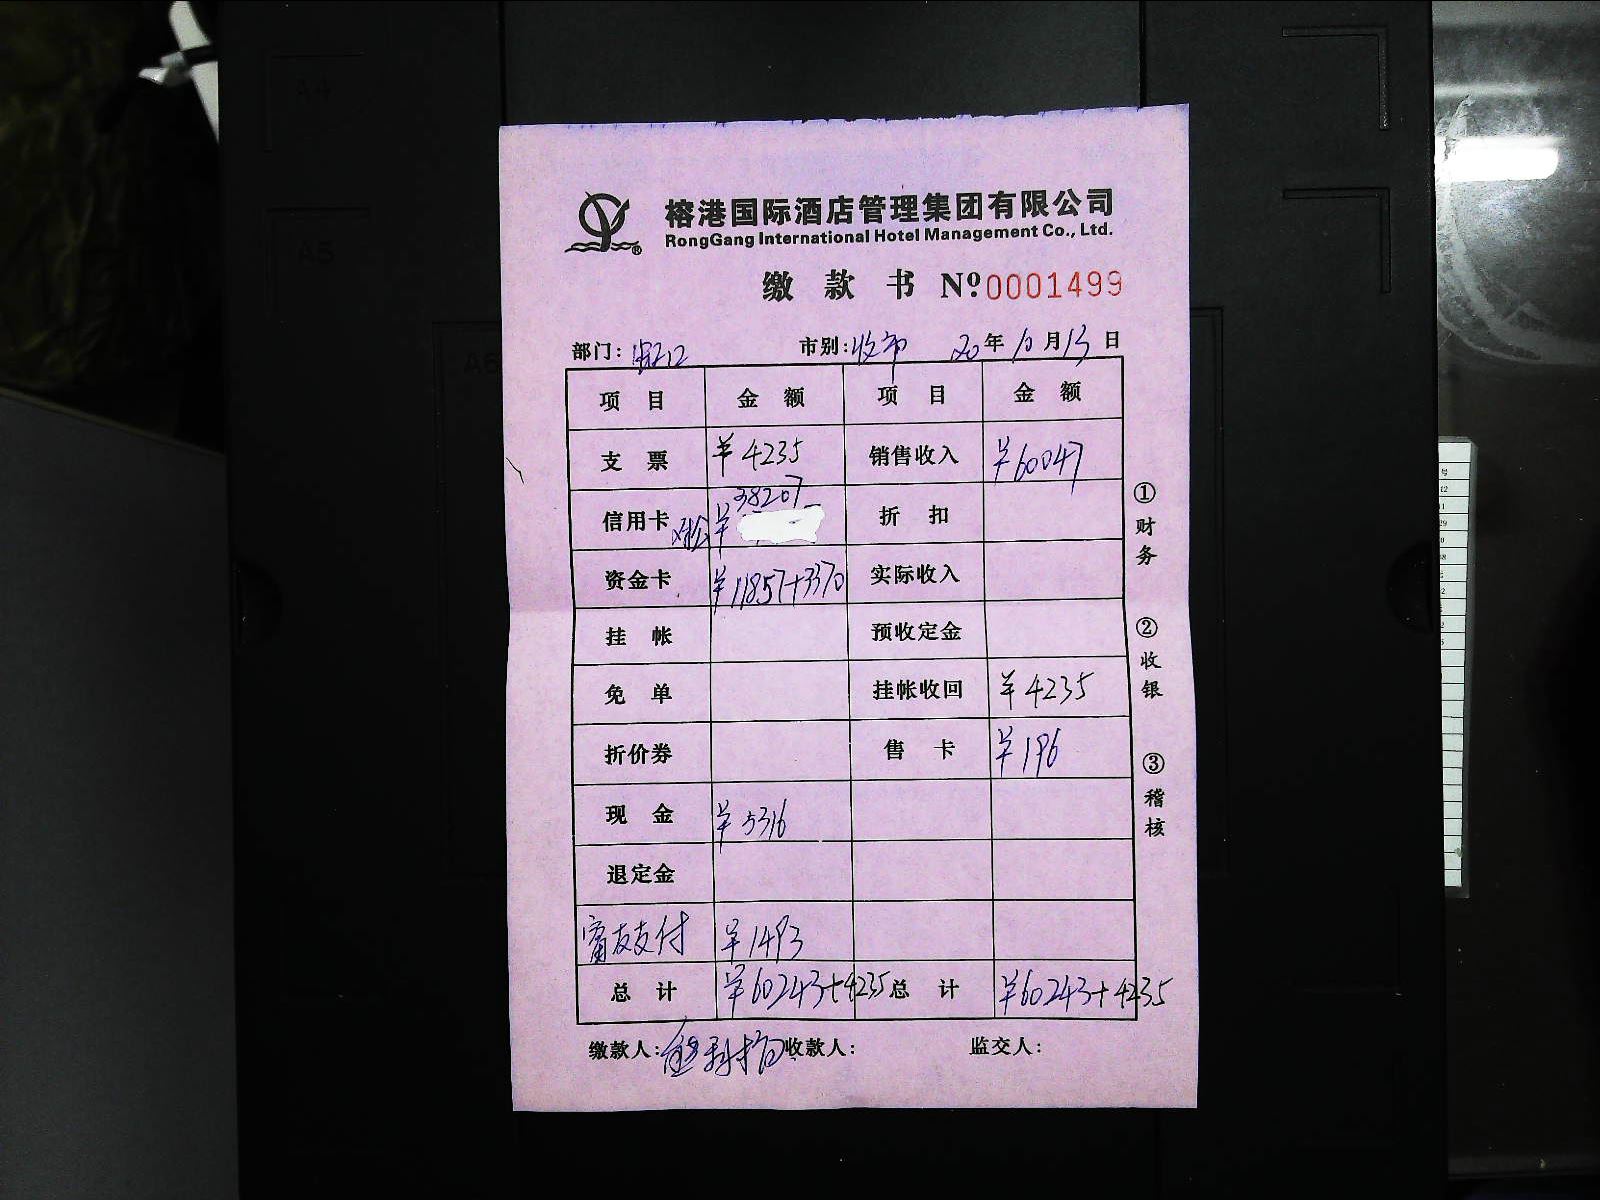 榕港国际酒店管理集团有限公司
RongGang International Hotel Management Co., Ltd.
缴款书 №0001499
部门: 市别:收市 20年10月13日
项目 金额 项目 金额
支票 ¥4235 销售收入 ¥60047
信用卡 ¥38207 折扣
资金卡 ¥11857+3370 实际收入
挂帐 预收定金
免单 挂帐收回 ¥4235
折价券 售卡 ¥196
现金 ¥5316
退定金
富友支付 ¥1493
总计 ¥60243+4235 总计 ¥60243+4235
缴款人: 收款人: 监交人:
①财务
②收银
③稽核
A4
A5
A6